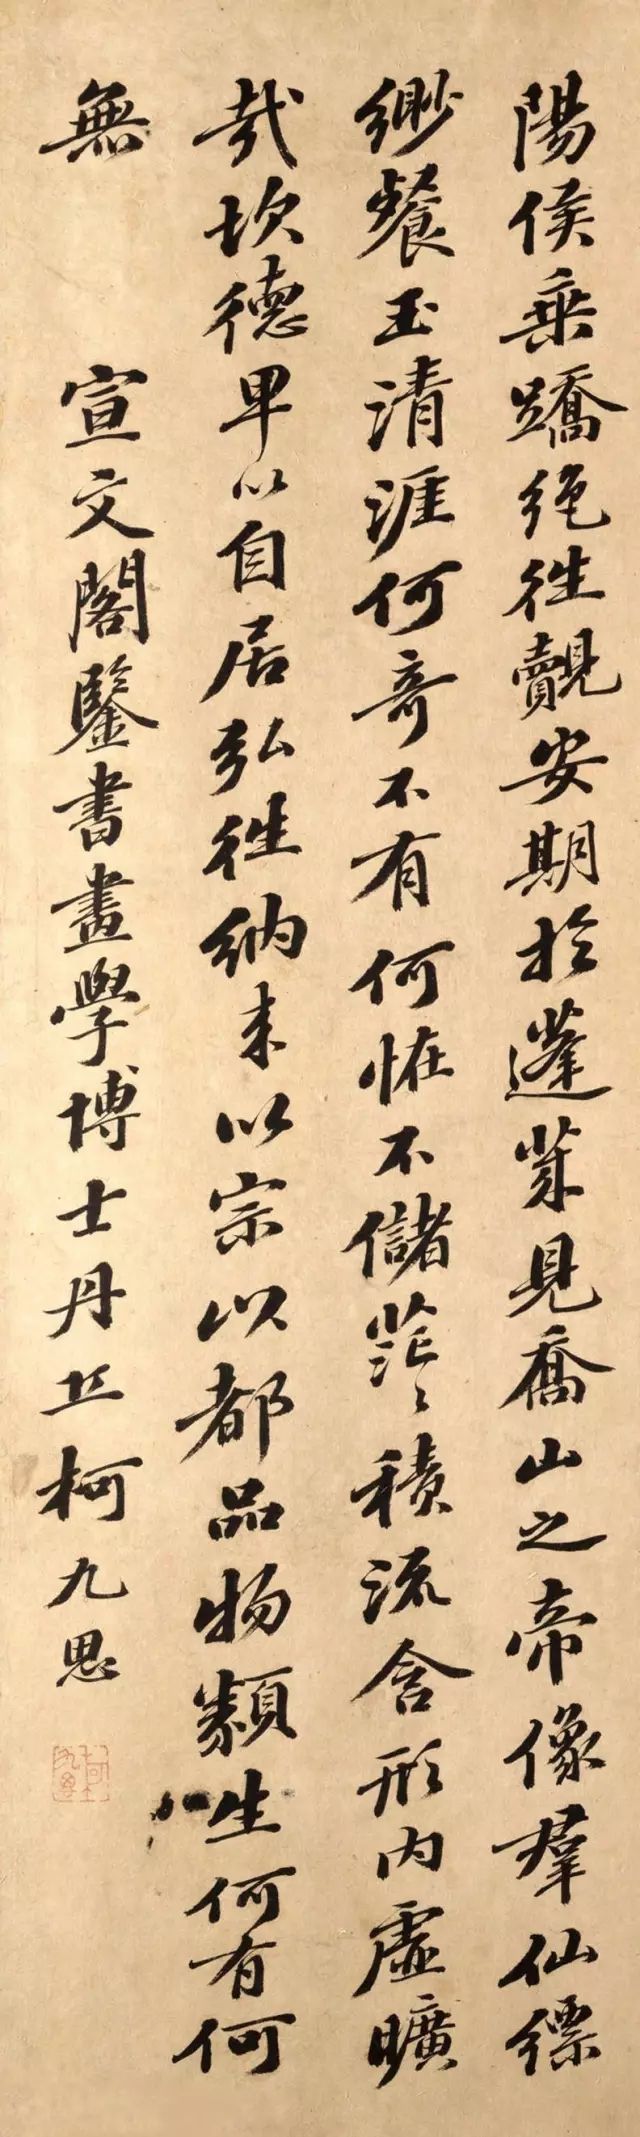 陽侯乗蹻絶徃覿安期於蓬萊見喬山之帝像羣仙縹
緲餐玉清涯何竒不有何恠不儲茫〻積流含形内虚曠
哉坎德卑以自居弘徃納来以宗以都品物類生何有何
無
宣文閣鑒書畫學博士丹丘柯九思